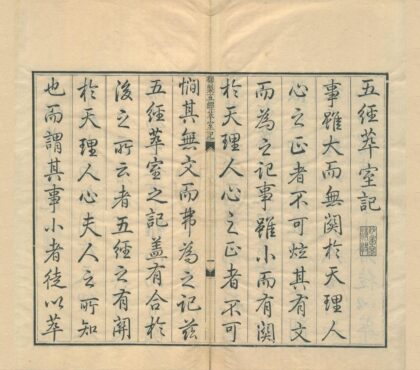 五經萃室記
事雖大而無關於天理人
心之正者不可炫其有文
而為之記事雖小而有關
於天理人心之正者不可
御製五經萃室記
一
憫其無文而弗為之記茲
五經萃室之記蓋有合於
後之所云者五經之有關
於天理人心夫人之所知
也而謂其事小者徒以萃